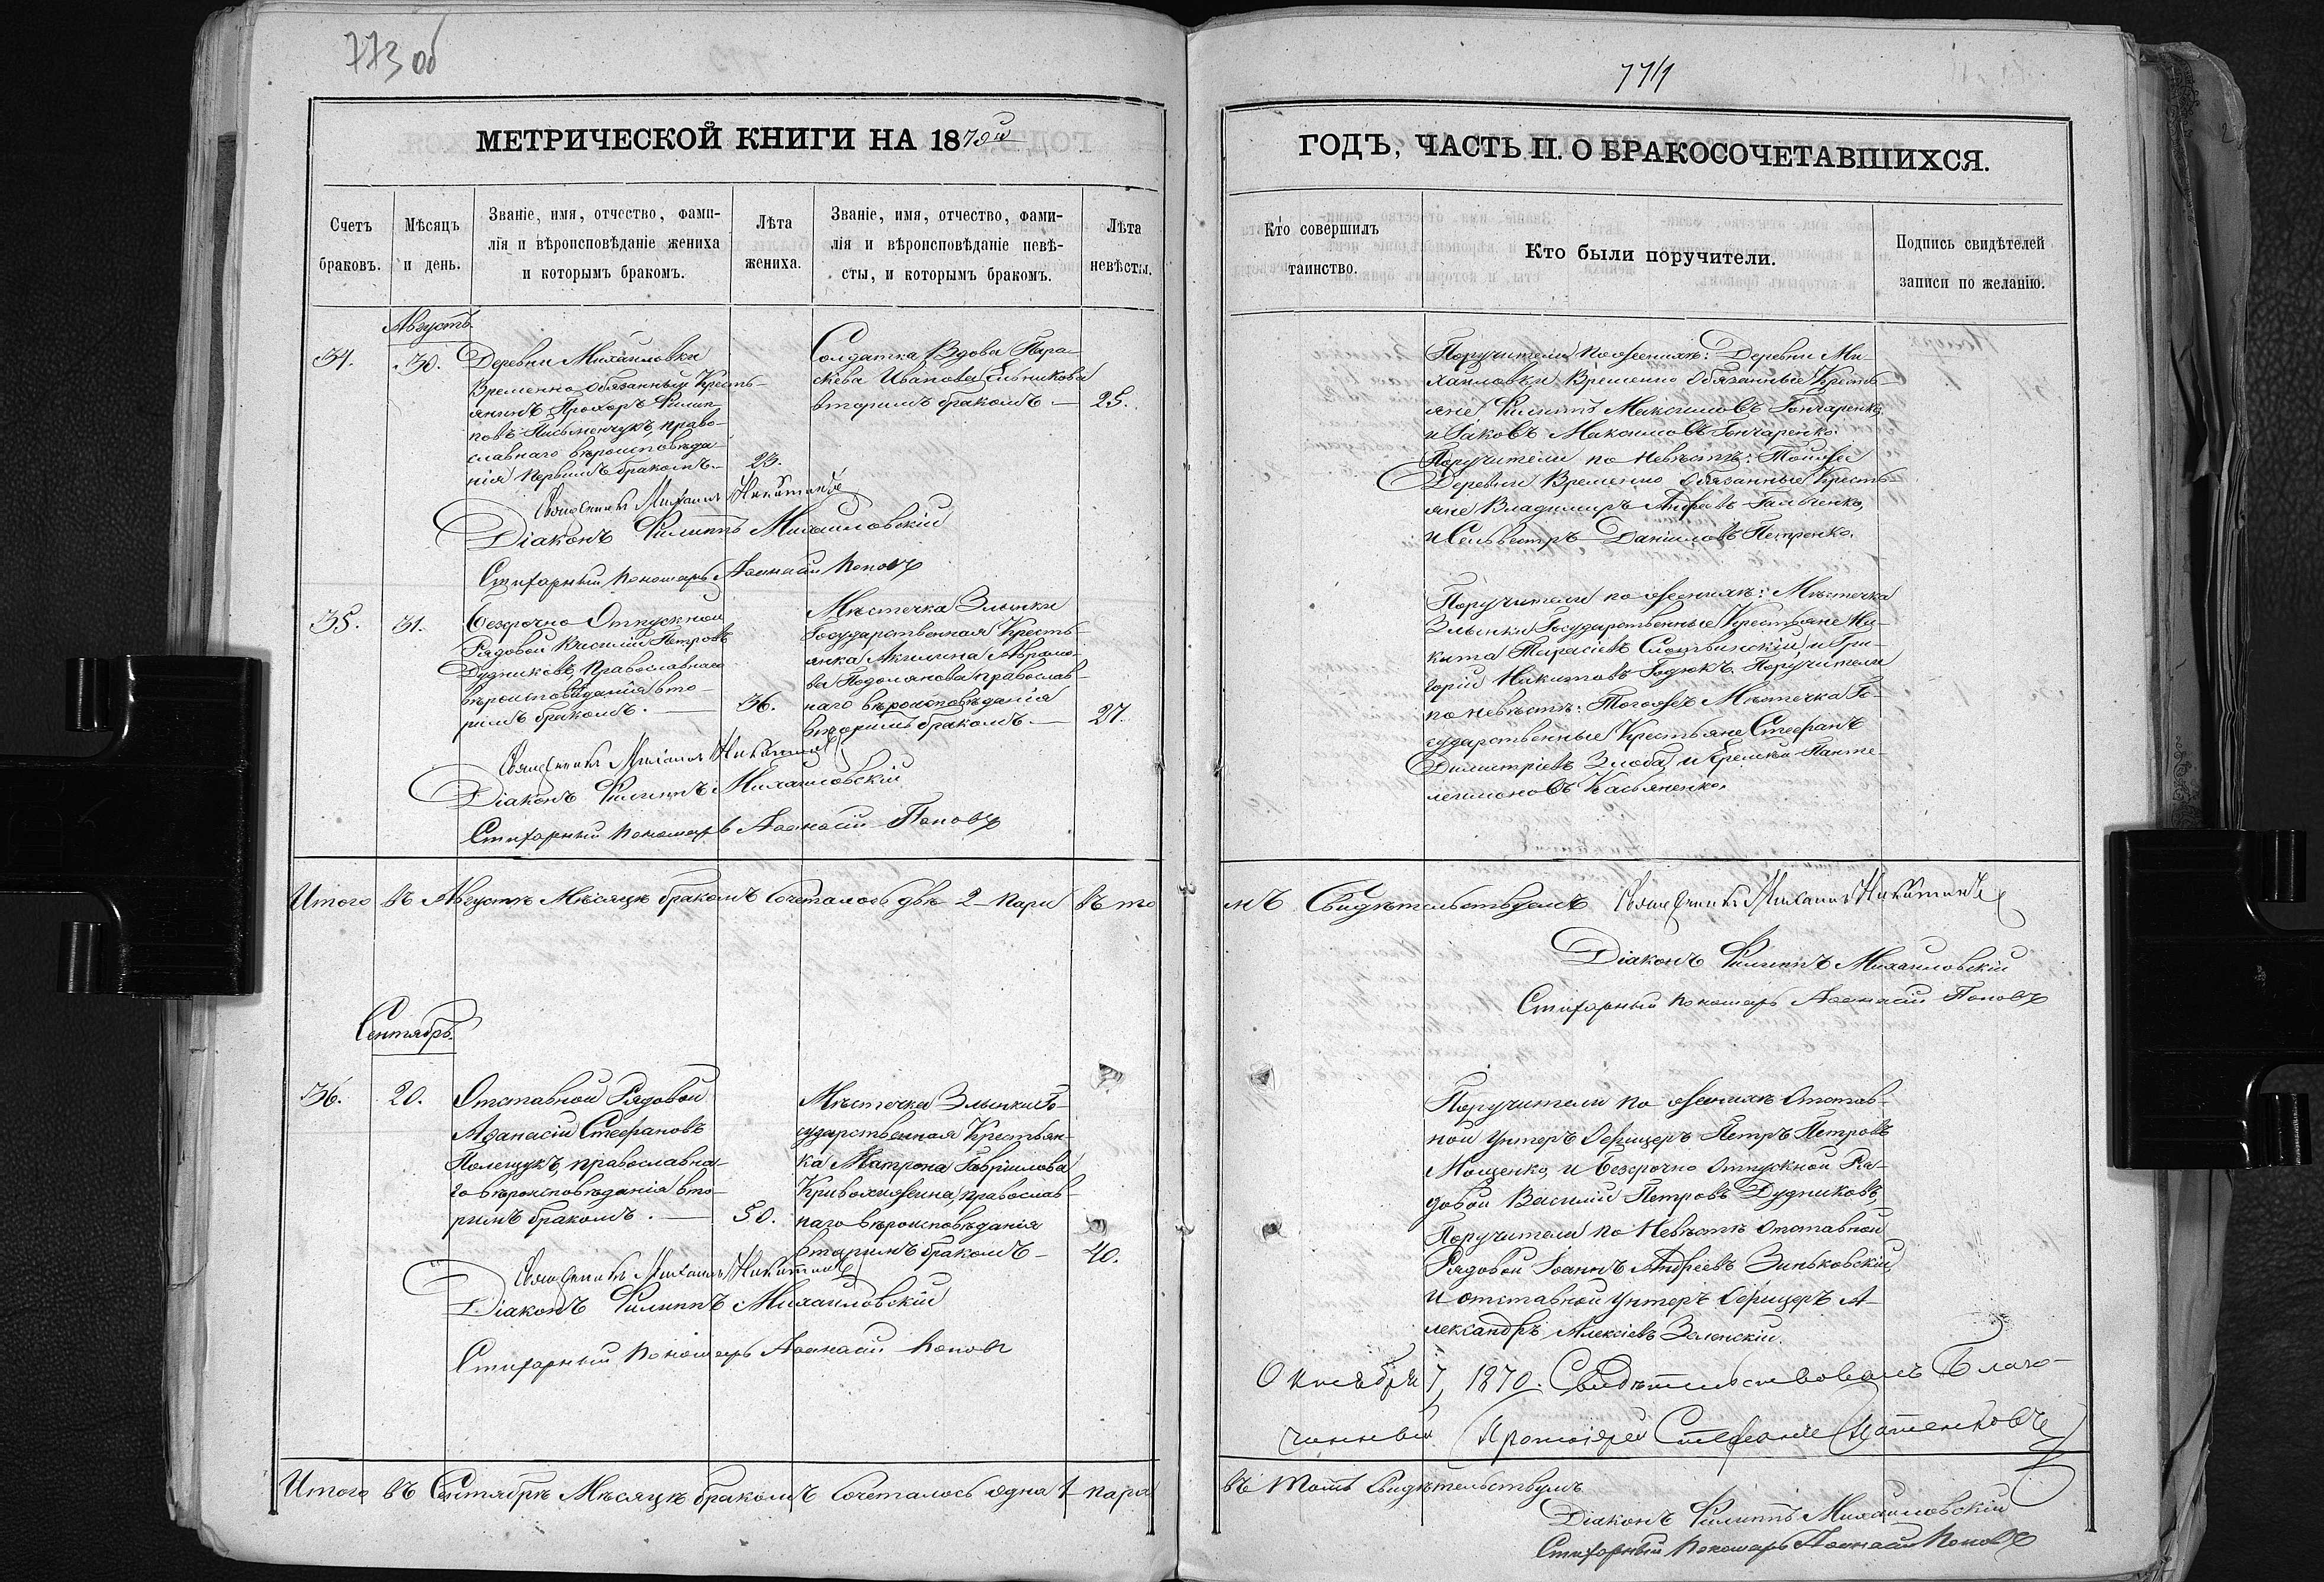 773 об
МЕТРИЧЕСКОЙ КНИГИ НА 1870й
Счетъ
браковъ.
Мѣсяцъ
и день.
Званіе, имя, отчество, фами-
лія и вѣроисповѣданіе жениха
и которымъ бракомъ.
Лѣта
жениха.
Званіе, имя, отчество, фами-
лія и вѣроисповѣданіе невѣ-
сты, и которымъ бракомъ.
Лѣта
невѣсты.
Августъ
34.
30.
Деревни Михайловки
Временно обязанный Кресть-
янинъ Прохоръ Филип-
повъ Письменчукъ, право-
славнаго вѣроисповѣда-
нія первымъ бракомъ.
23.
Солдатка Вдова Пара-
скева Иванова
вторымъ бракомъ
25.
Священникъ Михаилъ Никитинъ
Діаконъ Филиппъ Михайловскій
Стихарный Пономарь Аѳанасій Поповъ
35.
31.
Безсрочно Отпускной
Рядовой Василій Петровъ
Дудниковъ, Православнаго
вѣроисповѣданія вто-
рымъ бракомъ.
36.
Мѣстечка Злынки
Государственная Кресть-
янка Акилина Аврамо-
ва Подолянова православ-
наго вѣроисповѣданія
вторымъ бракомъ
27.
Священникъ Михаилъ Никитинъ
Діаконъ Филиппъ Михайловскій
Стихарный Пономарь Аѳанасій Поповъ
Итого въ Августѣ Мѣсяцѣ бракомъ сочеталось двѣ 2 пары въ то
Сентябрь.
36.
20.
Отставной Рядовой
Аѳанасій Стефановъ
Полещукъ, православна-
го вѣроисповѣданія вто-
рымъ бракомъ.
50.
Мѣстечка Злынки Го-
сударственная Крестьян-
ка Матрона Гавріилова
православ-
наго вѣроисповѣданія
вторымъ бракомъ
40.
Священникъ Михаилъ Никитинъ
Діаконъ Филиппъ Михайловскій
Стихарный Пономарь Аѳанасій Поповъ
Итого въ Сентябрѣ Мѣсяцѣ бракомъ сочеталось одна 1 пара
774
ГОДЪ, ЧАСТЬ II. О БРАКОСОЧЕТАВШИХСЯ.
Кто совершилъ
таинство.
Кто были поручители.
Подпись свидѣтелей
записи по желанію.
Поручители по женихѣ: Деревни Ми-
хайловки Временно Обязанные Кресть-
яне Филиппъ Максимовъ Гончаренко,
и Іаковъ Максимовъ Гончаренко.
Поручители по Невѣстѣ: Тойже
Деревни Временно Обязанные Кресть-
яне Владимиръ Андреевъ Гальченко,
и Сельвестръ Даніиловъ Петренко.
Поручители по женихѣ: Мѣстечка
Злынки Государственные Крестьяне Ни-
кита Тарасіевъ и Гри-
горій Никитовъ Годюкъ, Поручители
по невѣстѣ: Тогожъ Мѣстечка Го-
сударственные Крестьяне Стефанъ
Димитріевъ Злоба, и Еремѣй Панте-
леимоновъ Касьяненко.
мъ Свидѣтельствуемъ Священникъ Михаилъ Никитинъ
Діаконъ Филиппъ Михайловскій
Стихарный Пономарь Аѳанасій Поповъ
Поручители по женихѣ Отстав-
ной Унтеръ Офицеръ Петръ Петровъ
Мощенко, и Безсрочно Отпускной Ря-
довой Василій Петровъ Дудниковъ,
Поручители по Невѣстѣ Отставной
Рядовой Іоаннъ Андреевъ Зиньковскій,
и отставной Унтеръ Офицеръ А-
лександръ Алексіевъ Зеленскій.
Октября 7, 1870. Свидѣтельствовалъ Благо-
чинный Протоіерей Стефанъ
въ томъ Свидѣтельствуемъ
Діаконъ Филиппъ Михайловскій
Стихарный Пономарь Аѳанасій Поповъ